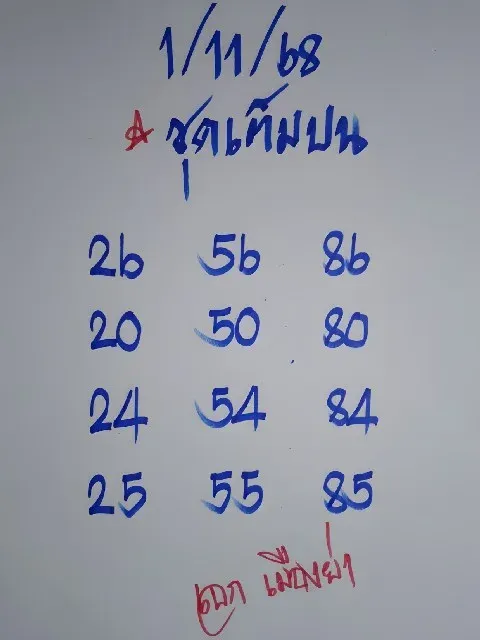 1/11/68
ชุดเต็มปน
26 56 86
20 50 80
24 54 84
25 55 85
เอก เมืองย่า